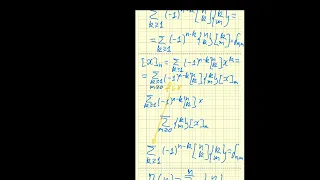 ∑_{k≥1} (-1)^{n-k} {n k} [k m] =
= ∑_{k≥1} (-1)^{n-k} {n k} [k m] = δ_{nm}
[x]_n = ∑_{k≥1} (-1)^{n-k} [n k] x^k =
= ∑_{k≥1, m≥0} (-1)^{n-k} [n k] {k m} [x]_m
∑_{k≥1} (-1)^{n-k} [n k] ×
∑_{m≥0} {k m} [x]_m
∑_{k≥1} (-1)^{n-k} [n k] {k m} = δ_{nm}